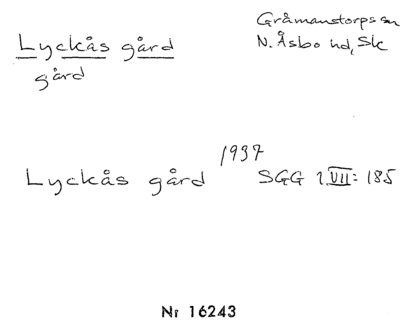 Lyckås gård
gård
Gråmanstorps sn
N. Åsbo hd, Sk
Lyckås gård 1937 SGG 1.VII: 185
Nr 16243